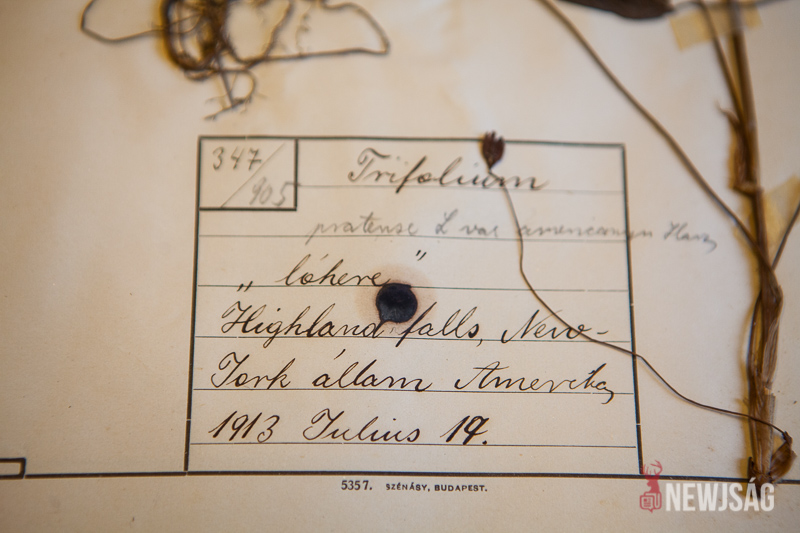 347/905
Trifolium
pratense L var americanum Harz
„ lóhere "
Highland falls, New-
York állam Amerika
1913 Julius 19.
5357. SZÉNÁSY, BUDAPEST.
NEWJSÁG